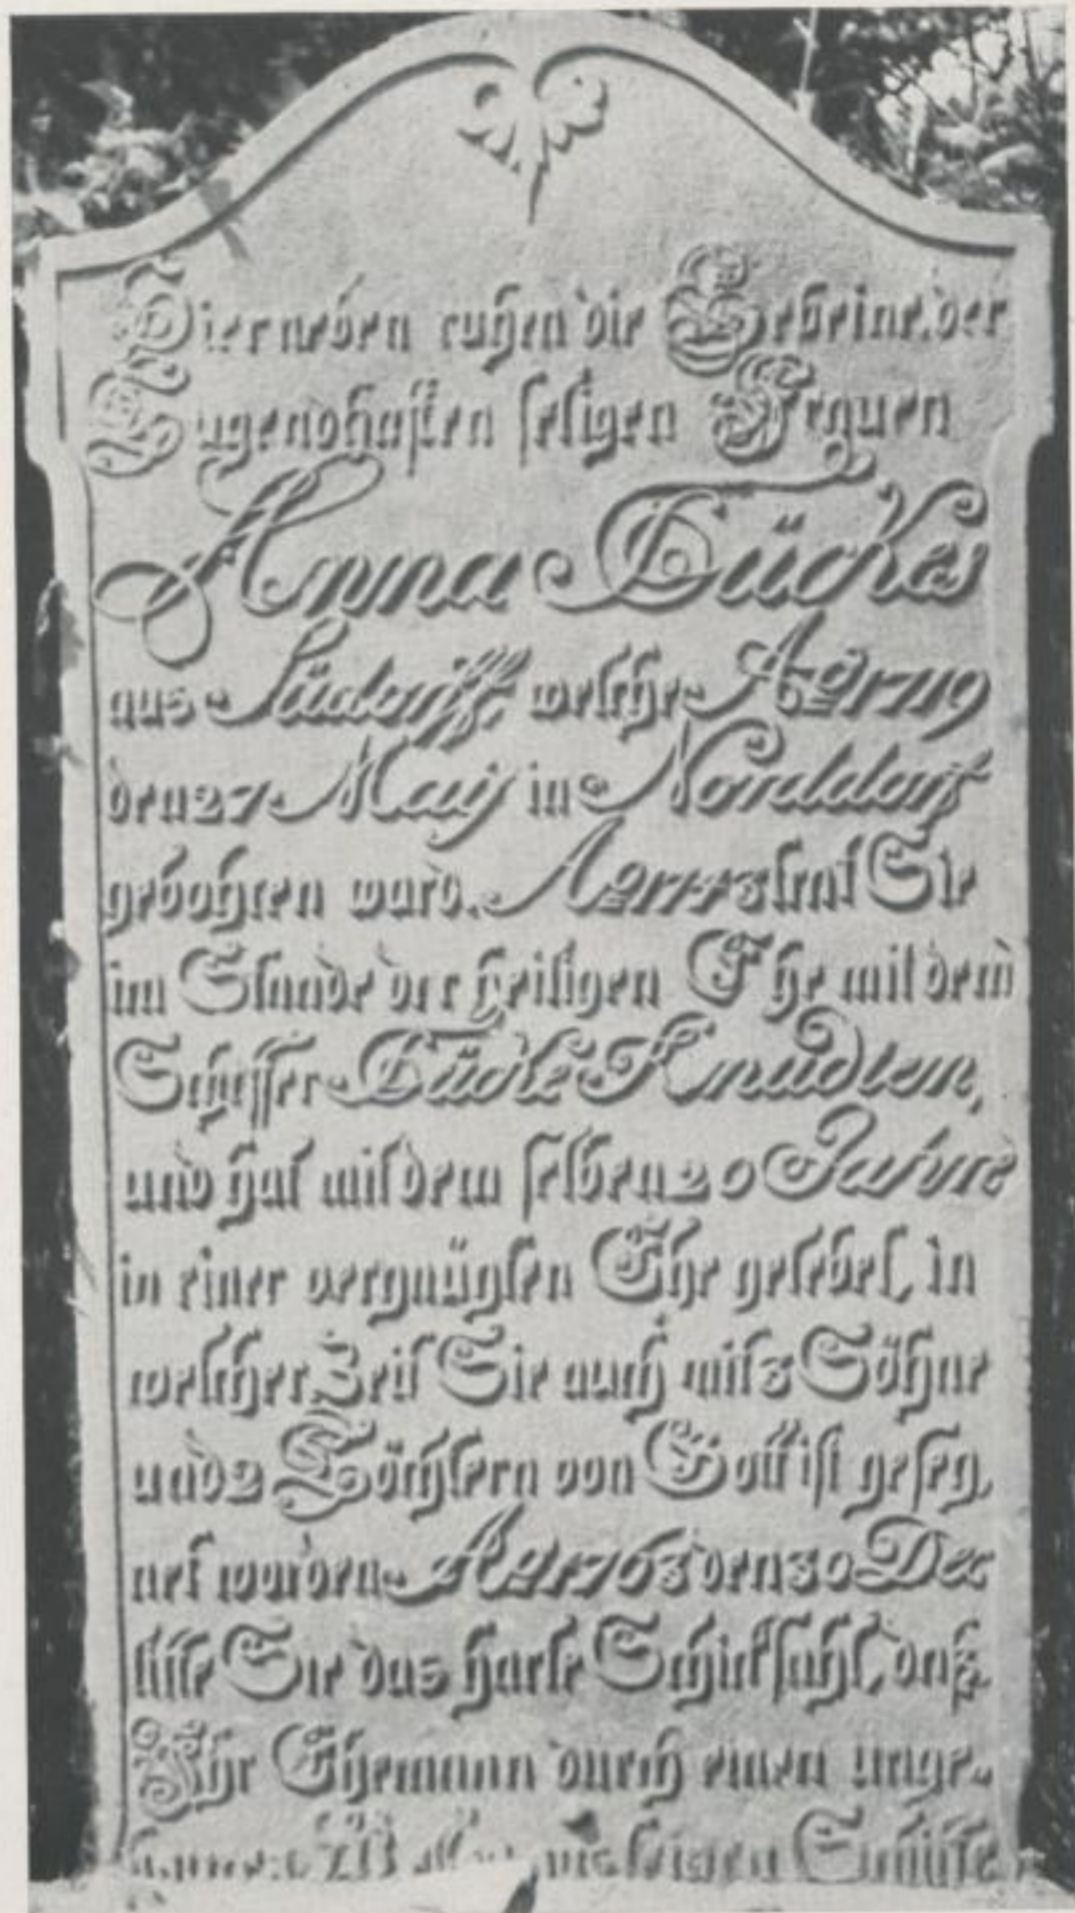 Hierneben ruhen die Gebeine der
Tugendhaften seligen Frauen
Anna Tückes
aus Südorff, welche Aº 1719
den 27 Maij in Norddorf
gebohren ward. Aº 1743 trat Sie
im Stande der heiligen Ehe mit dem
Schiffer Tücke Knudten,
und hat mit dem selben 20 Jahre
in einer vergnügten Ehe gelebet, in
welcher Zeit Sie auch mit 3 Söhne
und 2 Töchtern von Gott ist geseg,
net worden Aº 1763 den 30 Dec
litte Sie das harte Schicksahl, daß
Ihr Ehemann durch einen unge,
Schüsse